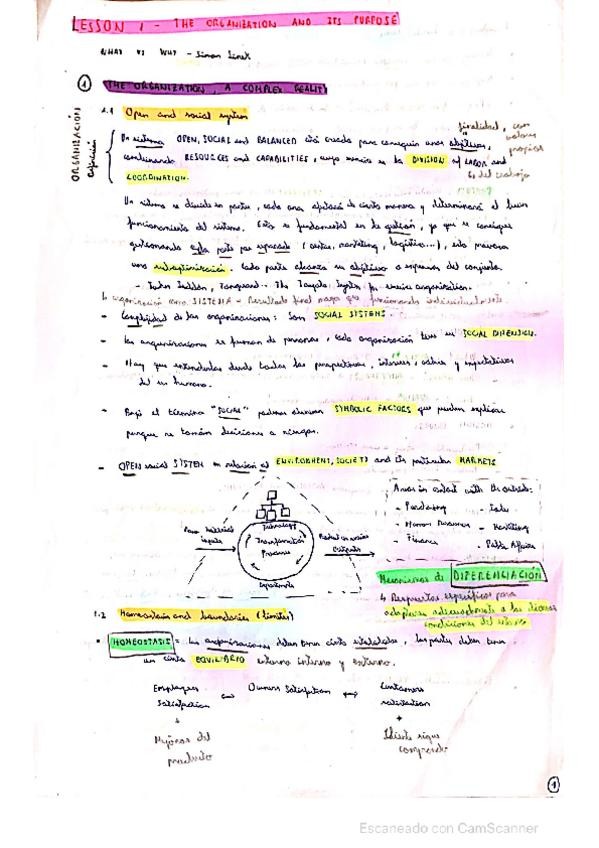 LESSON 1 - THE ORGANIZATION AND ITS PURPOSE
WHAT VS WHY - Simon Sinek
1 THE ORGANIZATION, A COMPLEX REALITY
1.1 Open and social system
finalidad, con valores propios
ORGANIZACIÓN
definición
Un sistema OPEN, SOCIAL and BALANCED está creado para conseguir unos objetivos,
combinando RESOURCES and CAPABILITIES, cuya es la DIVISION of LABOR and
COORDINATION.
del trabajo
Un sistema se divide en partes, cada una afectará de cierta manera y determinará el buen
funcionamiento del sistema. Esto es fundamental en la gestión, ya que si consigues
gestionando cada parte por separado (ventas, marketing, logística...), esto provocará
una suboptimización. Cada parte alcanza su objetivo a expensas del conjunto.
- John Seddon, Vanguard - The Toyota System for service organization.
organización como SISTEMA - Resultado final mayor que funcionando individualmente
- Complejidad de las organizaciones: Son SOCIAL SISTEMS.
- Las organizaciones se forman de personas, cada organización tiene su SOCIAL DIMENSION.
- Hay que entenderlas desde todas las perspectivas, intereses, y expectativas
del ser humano.
- Bajo el término "SOCIAL" podemos SYMBOLIC FACTORS que pueden explicar
porque se toman decisiones a riesgos.
- OPEN social SISTEM en relación al ENVIRONMENT, SOCIETY and its particular MARKETS
Areas in contact with the outside:
- Purchasing - Sales
- Human Resources - Marketing
- Finance - Public Affairs
Raw Material
inputs
Technology
Transformation
Processes
Product or service
Outputs
Mecanismos de DIFERENCIACIÓN
Respuestas específicas para
adaptarse adecuadamente a las diversas
condiciones del entorno
1.2 Homeostasis and boundaries (limites)
HOMEOSTASIS = Las organizaciones deben tener cierta estabilidad, las partes deben tener
un cierto EQUILIBRIO entorno interno y externo.
Employees Satisfaction Owners Satisfaction Customers satisfaction
Mejoras del producto
Cliente sigue comprando
1
Escaneado con CamScanner